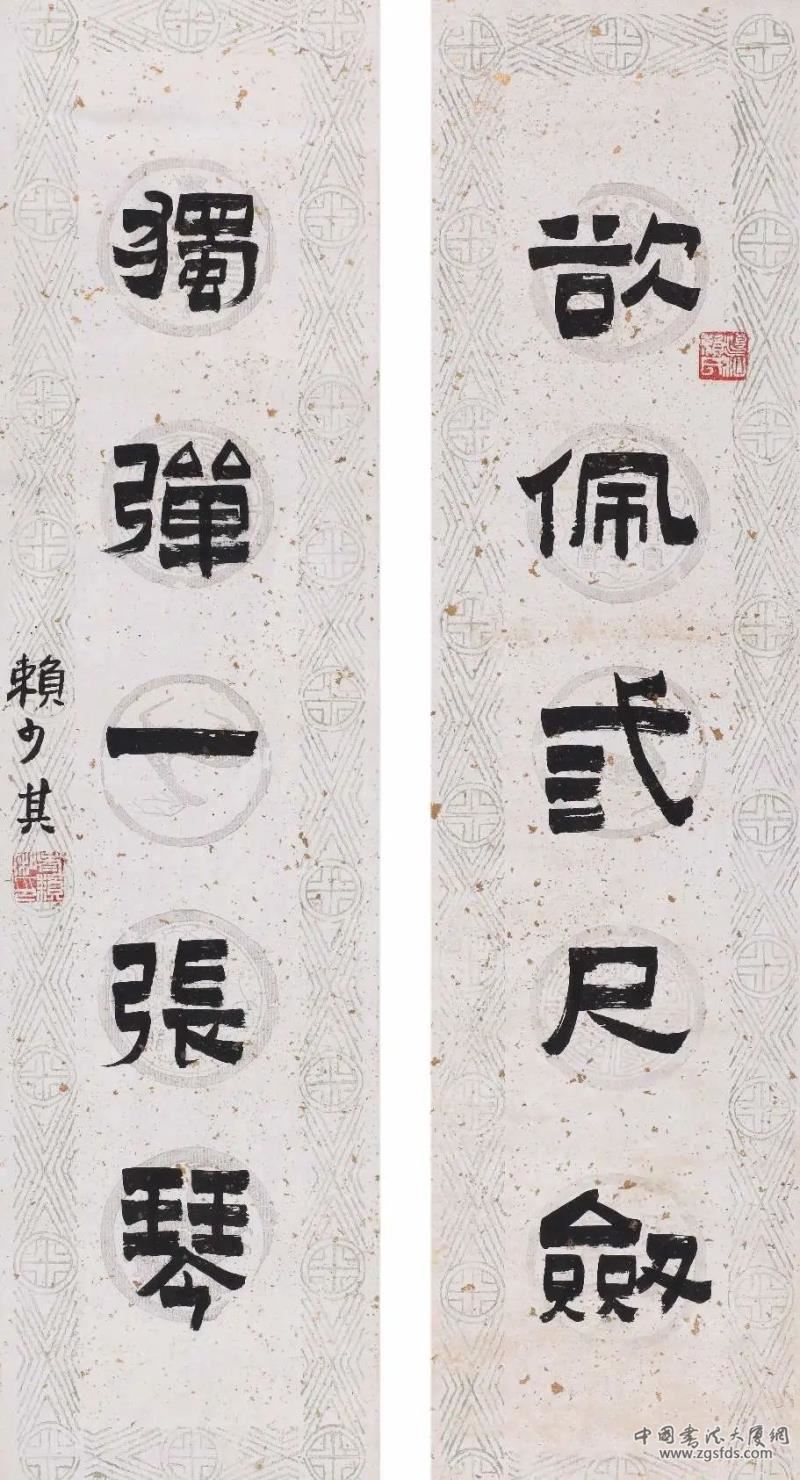 欲佩弎尺劒
獨彈一張琴
賴少其
中國書法大廈網
www.zgsfds.com